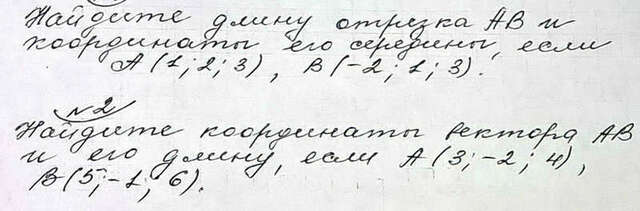 Найдите длину отрезка АВ и
координаты его середины, если
А(1; 2; 3), В(-2; 1; 3).
№2
Найдите координаты вектора АВ
и его длину, если А(3; -2; 4),
В(5; -1; 6).